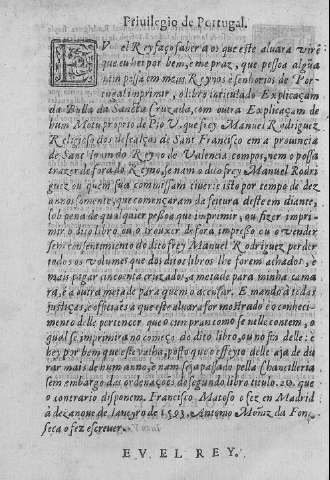 Priuilegio de Portugal.
EV el Rey faço saber a os que este aluara virẽ
que eu hey por bem, e me praz, que pessoa algũa
nim possa em meus Reynos e senhorios de Por-
tugal imprimir, o libro intitulado Explicaçam
da Bulla da Sancta Cruzada, com outra Explicaçam de
hum Motu proprio de Pio V. que frey Manuel Rodriguez
Religioso dos descalços de Sant Francisco em a prouincia
de Sant Ioam do Reyno de Valencia compos, nem o possa
trazer de fora do Reyno, se nam o dito frey Manuel Rodri
guez ou quem sua comissam tiuer e isto por tempo de dez
annos somente, que começaram da feitura deste em diante,
sob pena de qualquer pessoa que imprimir, ou fizer impri-
mir o dito libro, ou o trouxer de fora impresso ou o vender
sem consentimento do dito frey Manuel Rodriguez perder
todos os volumes que dos ditos libros lhe forem achados, e
mais pagar cincoẽta cruzados, a metade para minha cama
ra, e a outra metade para quem o accusar. E mando a todas
justiças, e officiães a que este aluara for mostrado e o conheci-
mento delle pertencer que o cumpram como se nelle contem, o
qual se imprimira no começo do dito libro, ou no fin delle: e
hey por bem que este valha, posto que o effeyto delle aja de du
rar mais de hum anno, e nam seja passado pella Chancilleria
sem embargo das ordenações do segundo libro titulo. 20. que
o contrario disponem. Francisco Matoso o fez en Madrid
à dezanoue de Ianeyro de 1593. Antonio Moniz da Fon-
seca o fez escreuer.
EV. EL REY.